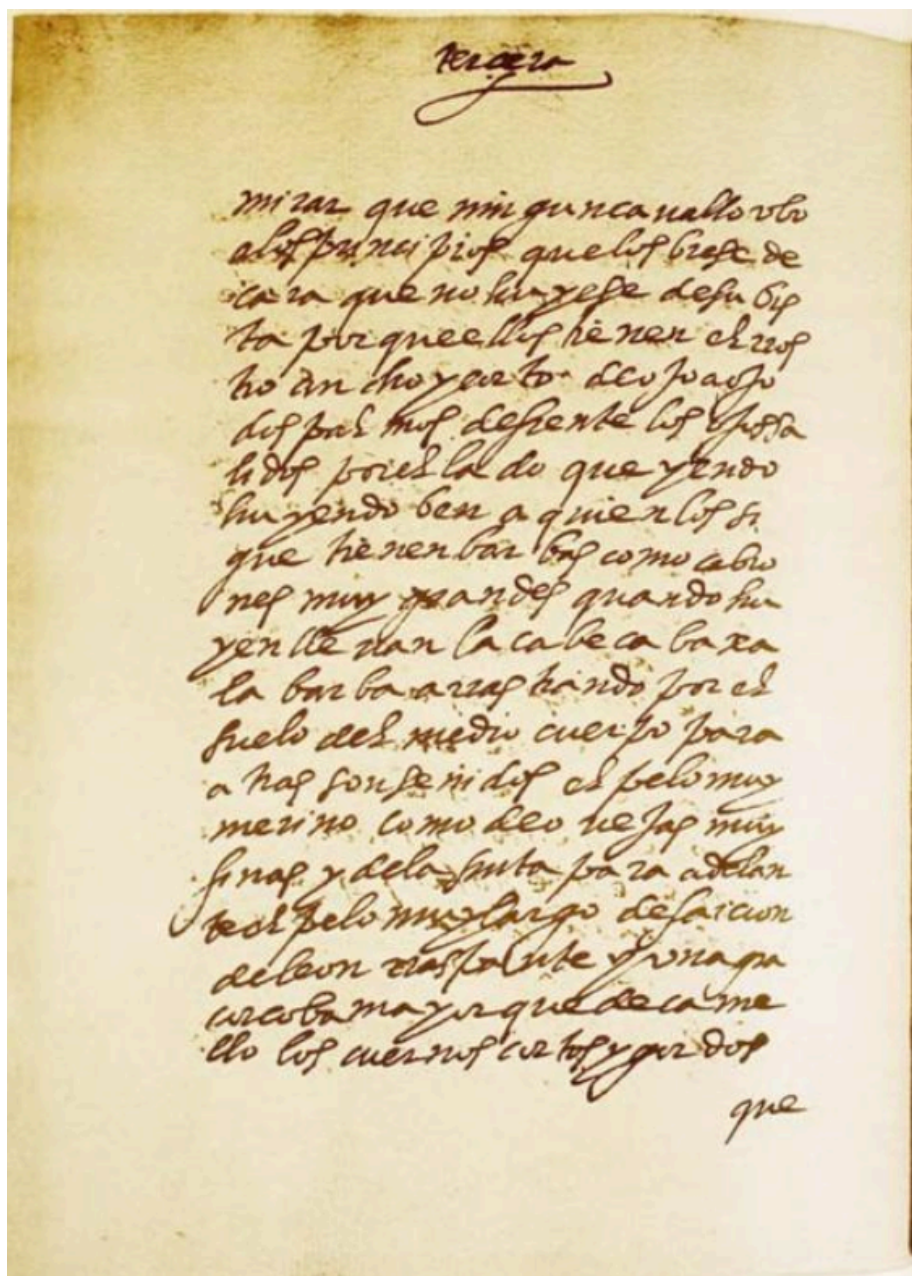 tercera
mirar que ningun cauallo vbo
a los principios que los biese de
cara que no huyese de su bis
ta porque ellos tienen el rros
tro ancho y corto de ojo a ojo
dos palmos de frente los ojos sa
lidos por el lado que yendo
huyendo ben a quien los si
gue tienen barbas como cabro
nes muy grandes quando hu
yen lleuan la cabeca baxa
la barba arrastrando por el
suelo del medio cuerpo para
atras son senidos el pelo muy
merino como de ouejas muy
finas y de la sinta para adelan
te el pelo muy largo de faicion
de leon rraspante y vna gra
corcoba mayor que de came
llo los cuernos cortos y gordos
que